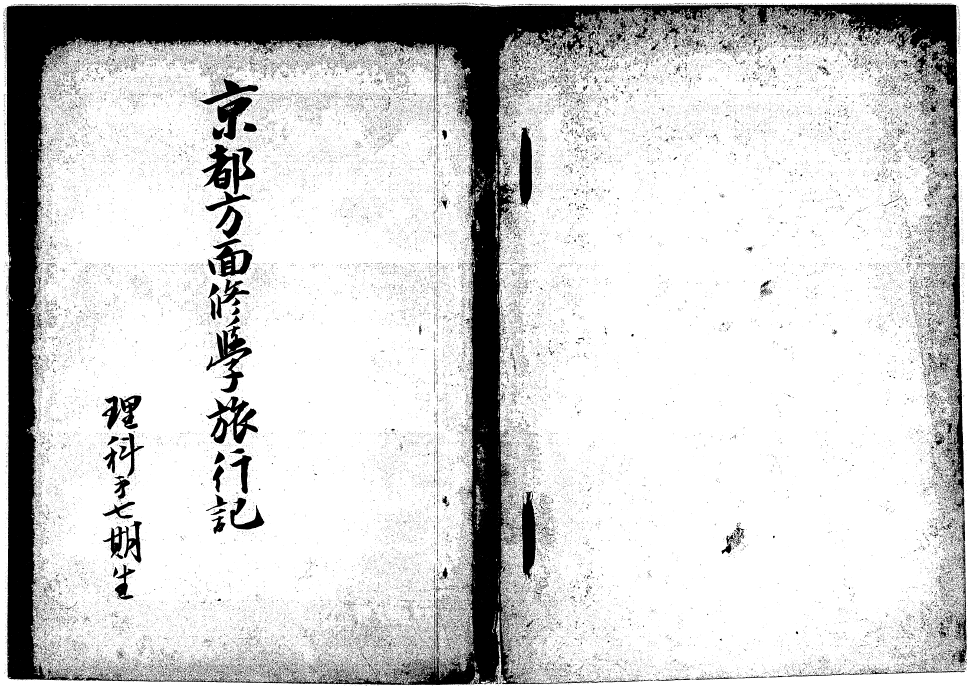 京都方面修學旅行記
理科才七期生